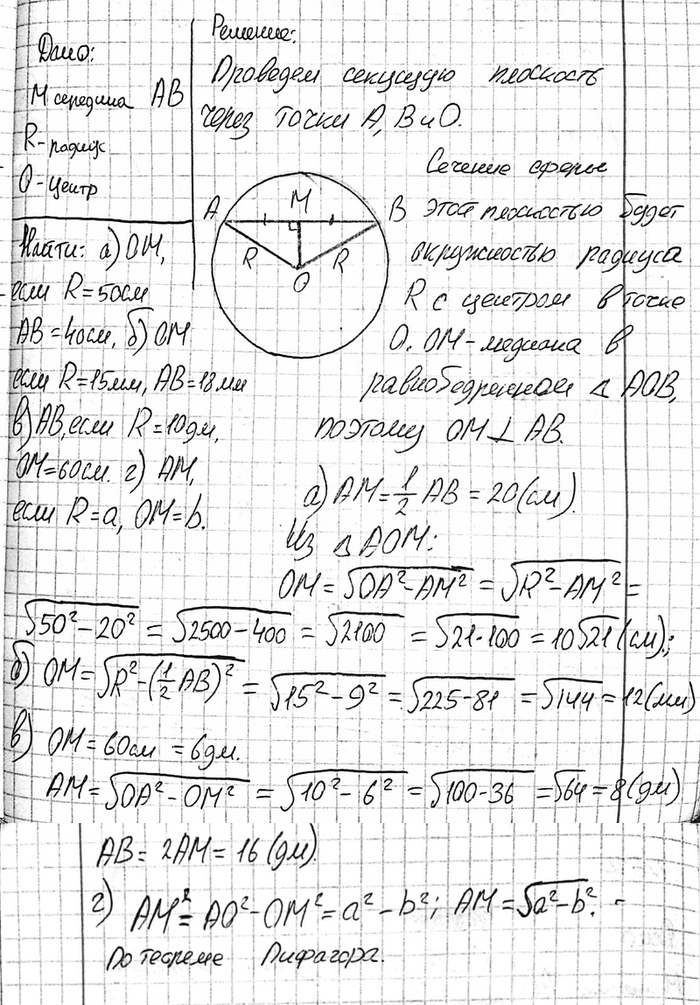 Дано:
M середина AB
R-радиус
O-центр
Найти: а) OM,
если R=50см
AB=40см, б) OM
если R=15мм, AB=18мм
в) AB, если R=10дм,
OM=60см. г) AM,
если R=a, OM=b.
Решение:
Проведем секущую плоскость
через точки A, B и O.
A M B
R R
O
Сечение сферы
этой плоскостью будет
окружностью радиуса
R с центром в точке
O. OM-медиана в
равнобедренном △ AOB,
поэтому OM⊥AB.
а) AM=1/2 AB=20(см).
Из △ AOM:
OM=√(OA²-AM²) = √(R²-AM²) =
√(50²-20²) = √(2500-400) = √2100 = √(21·100) = 10√21 (см).;
б) OM=√(R²-(1/2 AB)²) = √(15²-9²) = √(225-81) = √144 = 12(мм)
в) OM=60см = 6дм.
AM=√(OA²-OM²) = √(10²-6²) = √(100-36) = √64 = 8(дм)
AB = 2AM = 16(дм).
г) AM² = AO²-OM² = a²-b²; AM = √(a²-b²).
По теореме Пифагора.